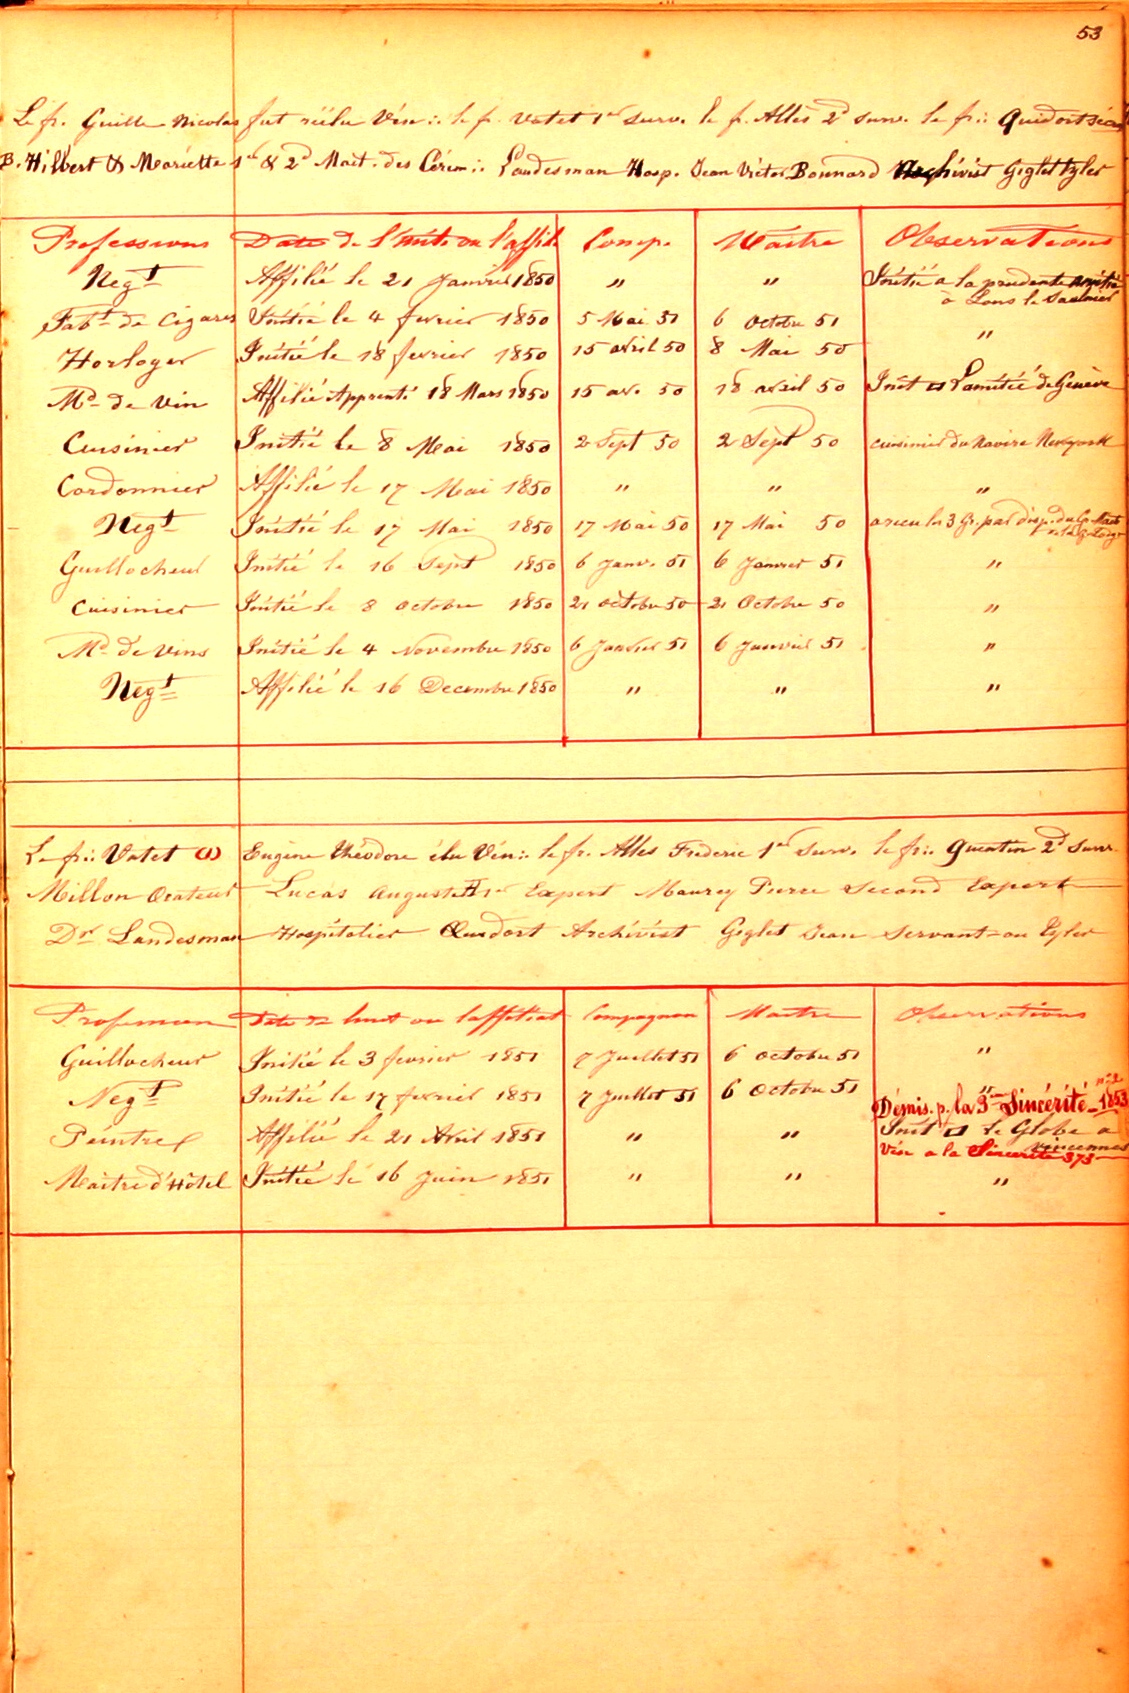 53
Le fr. Guille Nicolas fut réélu Vén:. le fr. Vatet 1er Surv. le fr. Allès 2d surv. le fr:. Quidort
B. Hilbert & Mariette 1er & 2d Mait. des Cérém:. Landesman Hosp. Jean Victor Bonnard Archivist Giglet tyler
Professions Date de l'Init. ou l'affil Comp. Maitre Observations
Negt Affilié le 21 Janvier 1850 " " Initié a la prudente amitié
a Lons le Saulnier
Fabt de Cigares Initié le 4 fevrier 1850 5 Mai 51 6 Octobre 51 "
Horloger Initié le 18 fevrier 1850 15 avril 50 8 Mai 50
Md de Vin Affilié Apprenti 18 Mars 1850 15 av. 50 18 avril 50 Init □ L'amitié de Genève
Cuisinier Initié le 8 Mai 1850 2 Sept 50 2 Sept 50 cuisinier du Navire Newyork
Cordonnier Affilié le 17 Mai 1850 " " "
Negt Initié le 17 Mai 1850 17 Mai 50 17 Mai 50 a recu les 3 Gr. par disp. du Gr. Mait
Guillocheur Initié le 16 Sept 1850 6 Janv. 51 6 Janvier 51 "
Cuisinier Initié le 8 Octobre 1850 21 octobre 50 21 Octobre 50 "
Md de Vins Initié le 4 Novembre 1850 6 Janvier 51 6 Janvier 51 "
Negt Affilié le 16 Decembre 1850 " " "
Le fr:. Vatet Eugène théodore élu Vén:. le fr. Alles Frederic 1er Surv. le fr:. Quentin 2d Surv.
Millon Orateur Lucas Auguste 1er Expert Maurey Pierre Second Expert
Dr Landesman Hospitalier Quidort Archivist Giglet Jean Servant ou Tyler
Profession Date de l'init ou l'affiliat Compagnon Maitre Observations
Guillocheur Initié le 3 fevrier 1851 7 Juillet 51 6 octobre 51 "
Negt Initié le 17 fevrier 1851 7 Juillet 51 6 Octobre 51 "
Démis. p. la Sincérité 1853
Peintre Affilié le 21 Avril 1851 " " Init □ le Globe a
Vincennes
Vén a la Sincerité 373
Maitre d'Hôtel Initié le 16 Juin 1851 " " "